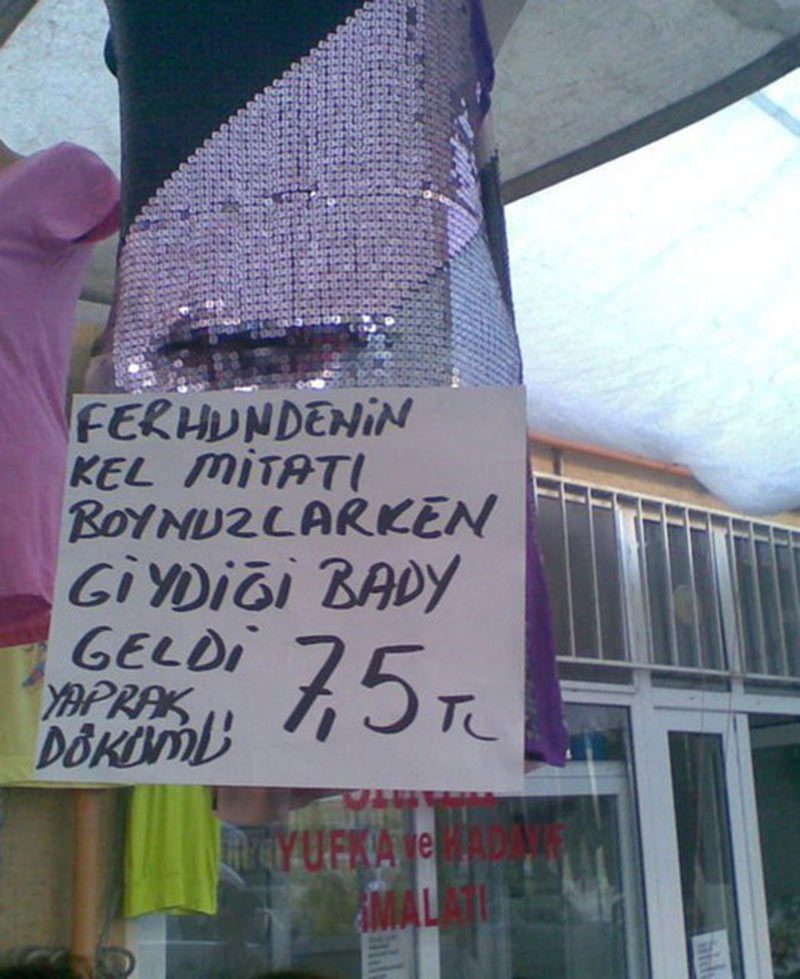 FERHUNDENİN
KEL MİTATI
BOYNUZLARKEN
GİYDİĞİ BADY
GELDİ 7,5 TL
YAPRAK
DÖKÜMÜ
YUFKA ve KADAYIF
İMALATI